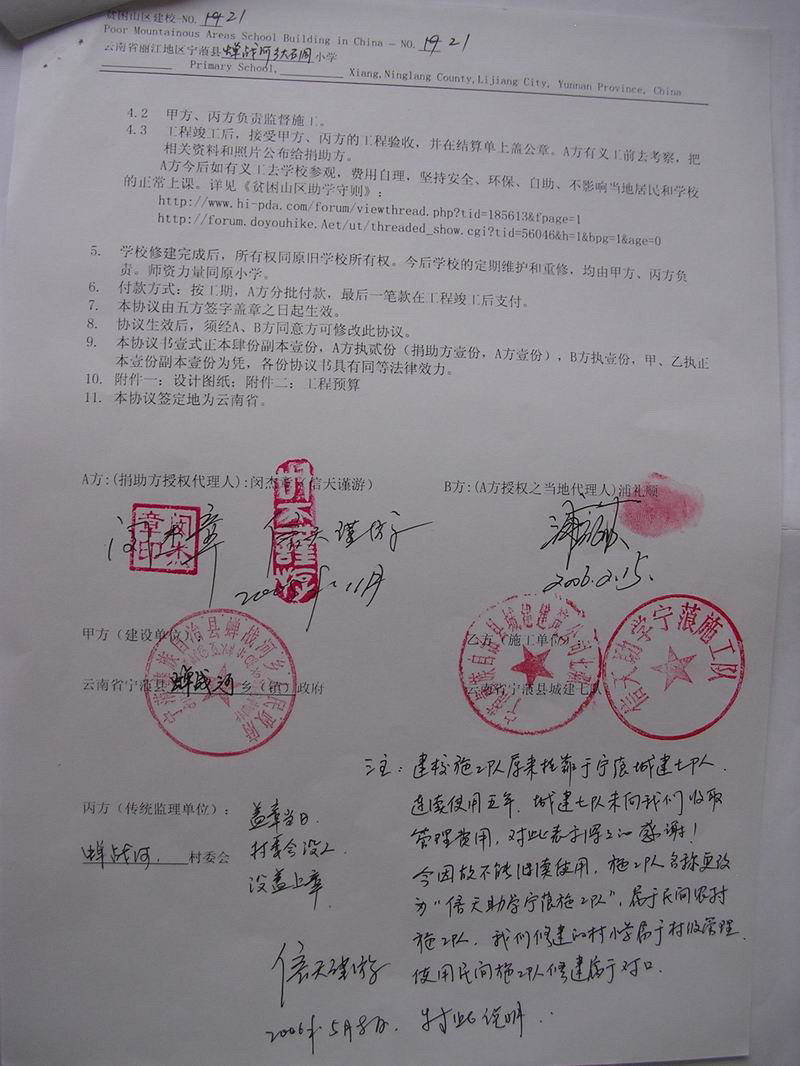 贫困山区建校-NO. 19-21
Poor Mountainous Areas School Building in China – NO. 19-21
云南省丽江地区宁蒗县 蝉战河乡 小学
Primary School, Xiang,Ninglang County,Lijiang City, Yunnan Province, China
4.2 甲方、丙方负责监督施工。
4.3 工程竣工后，接受甲方、丙方的工程验收，并在结算单上盖公章。A方有义工前去考察，把
相关资料和照片公布给捐助方。
A方今后如有义工去学校参观，费用自理，坚持安全、环保、自助、不影响当地居民和学校
的正常上课。详见《贫困山区助学守则》：
http://www.hi-pda.com/forum/viewthread.php?tid=185613&fpage=1
http://forum.doyouhike.Aet/ut/threaded_show.cgi?tid=56046&h=1&bpg=1&age=0
5. 学校修建完成后，所有权同原旧学校所有权。今后学校的定期维护和重修，均由甲方、丙方负
责。师资力量同原小学。
6. 付款方式：按工期，A方分批付款，最后一笔款在工程竣工后支付。
7. 本协议由五方签字盖章之日起生效。
8. 协议生效后，须经A、B方同意方可修改此协议。
9. 本协议书壹式正本肆份副本壹份，A方执贰份（捐助方壹份，A方壹份），B方执壹份，甲、乙执正
本壹份副本壹份为凭，各份协议书具有同等法律效力。
10. 附件一：设计图纸；附件二：工程预算
11. 本协议签定地为云南省。
A方:(捐助方授权代理人):闵杰章（信天谨游）
B方:(A方授权之当地代理人)浦礼顺
闵杰章 信天谨游
11月
2006.2.15.
甲方（建设单位）
乙方（施工单位）
云南省宁蒗县 蝉战河 乡（镇）政府
云南省宁蒗县城建七队
宁蒗彝族自治县蝉战河乡人民政府
信天助学宁蒗施工队
注：建校施工队原来挂靠于宁蒗城建七队，
连续使用五年，城建七队未向我们收取
管理费用，对此表于深之的感谢！
今因故不能继续使用，施工队名称更改
为“信天助学宁蒗施工队”，属于民间农村
施工队，我们修建的村小学属于村级管理，
使用民间施工队修建属于对口。
丙方（传统监理单位）：
蝉战河 村委会
盖章当日，
村委会没人
没盖上章
信天谨游
2006年5月8日，特此说明．